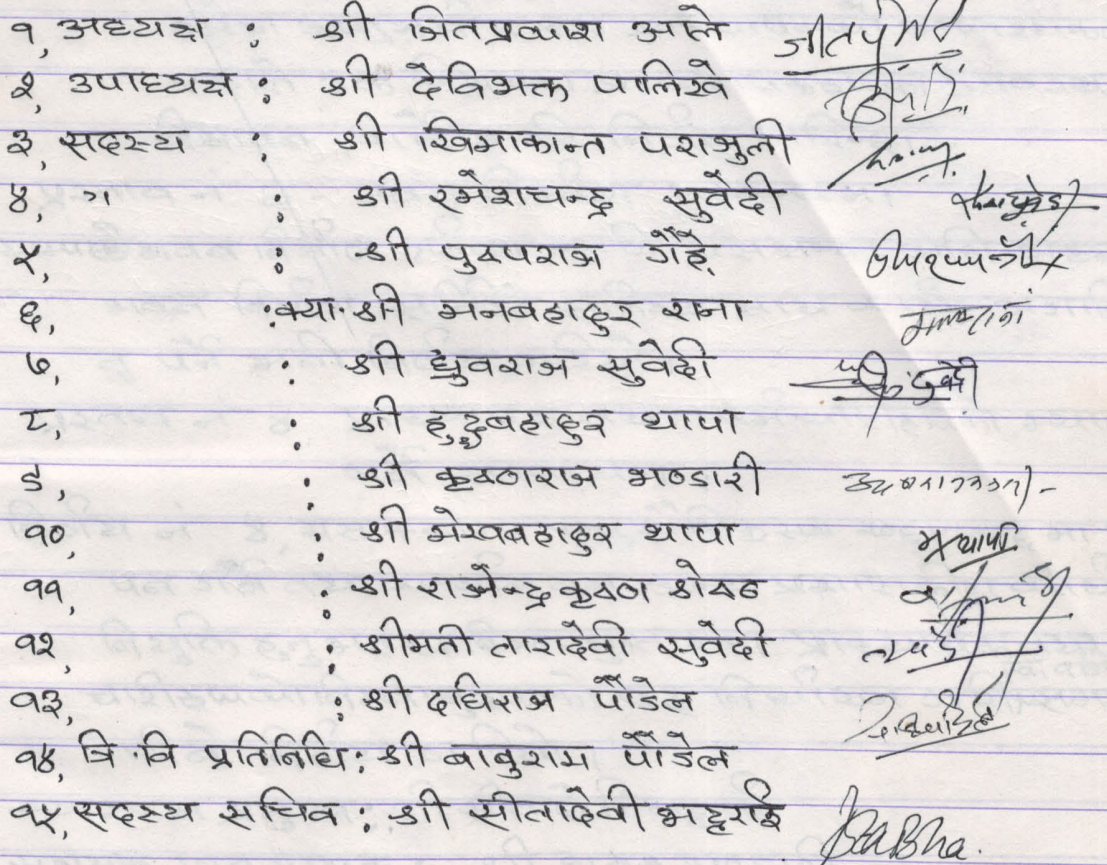 १, अध्यक्ष : श्री जितप्रकाश आले
२, उपाध्यक्ष : श्री देविभक्त पालिखे
३, सदस्य : श्री खिमाकान्त पराजुली
४, " : श्री रमेशचन्द्र सुवेदी
५, : श्री पुष्पराज गैह्रे
६, : क्या. श्री मनबहादुर राना
७, : श्री ध्रुवराज सुवेदी
८, : श्री बहादुर थापा
९, : श्री कृष्णराज भण्डारी
१०, : श्री मेखबहादुर थापा
११, : श्री राजेन्द्रकृष्ण श्रेष्ठ
१२, : श्रीमती तारादेवी सुवेदी
१३, : श्री दधिराज पौडेल
१४, त्रि.वि प्रतिनिधि : श्री बाबुराम पौडेल
१५, सदस्य सचिव : श्री सीतादेवी भट्टराई